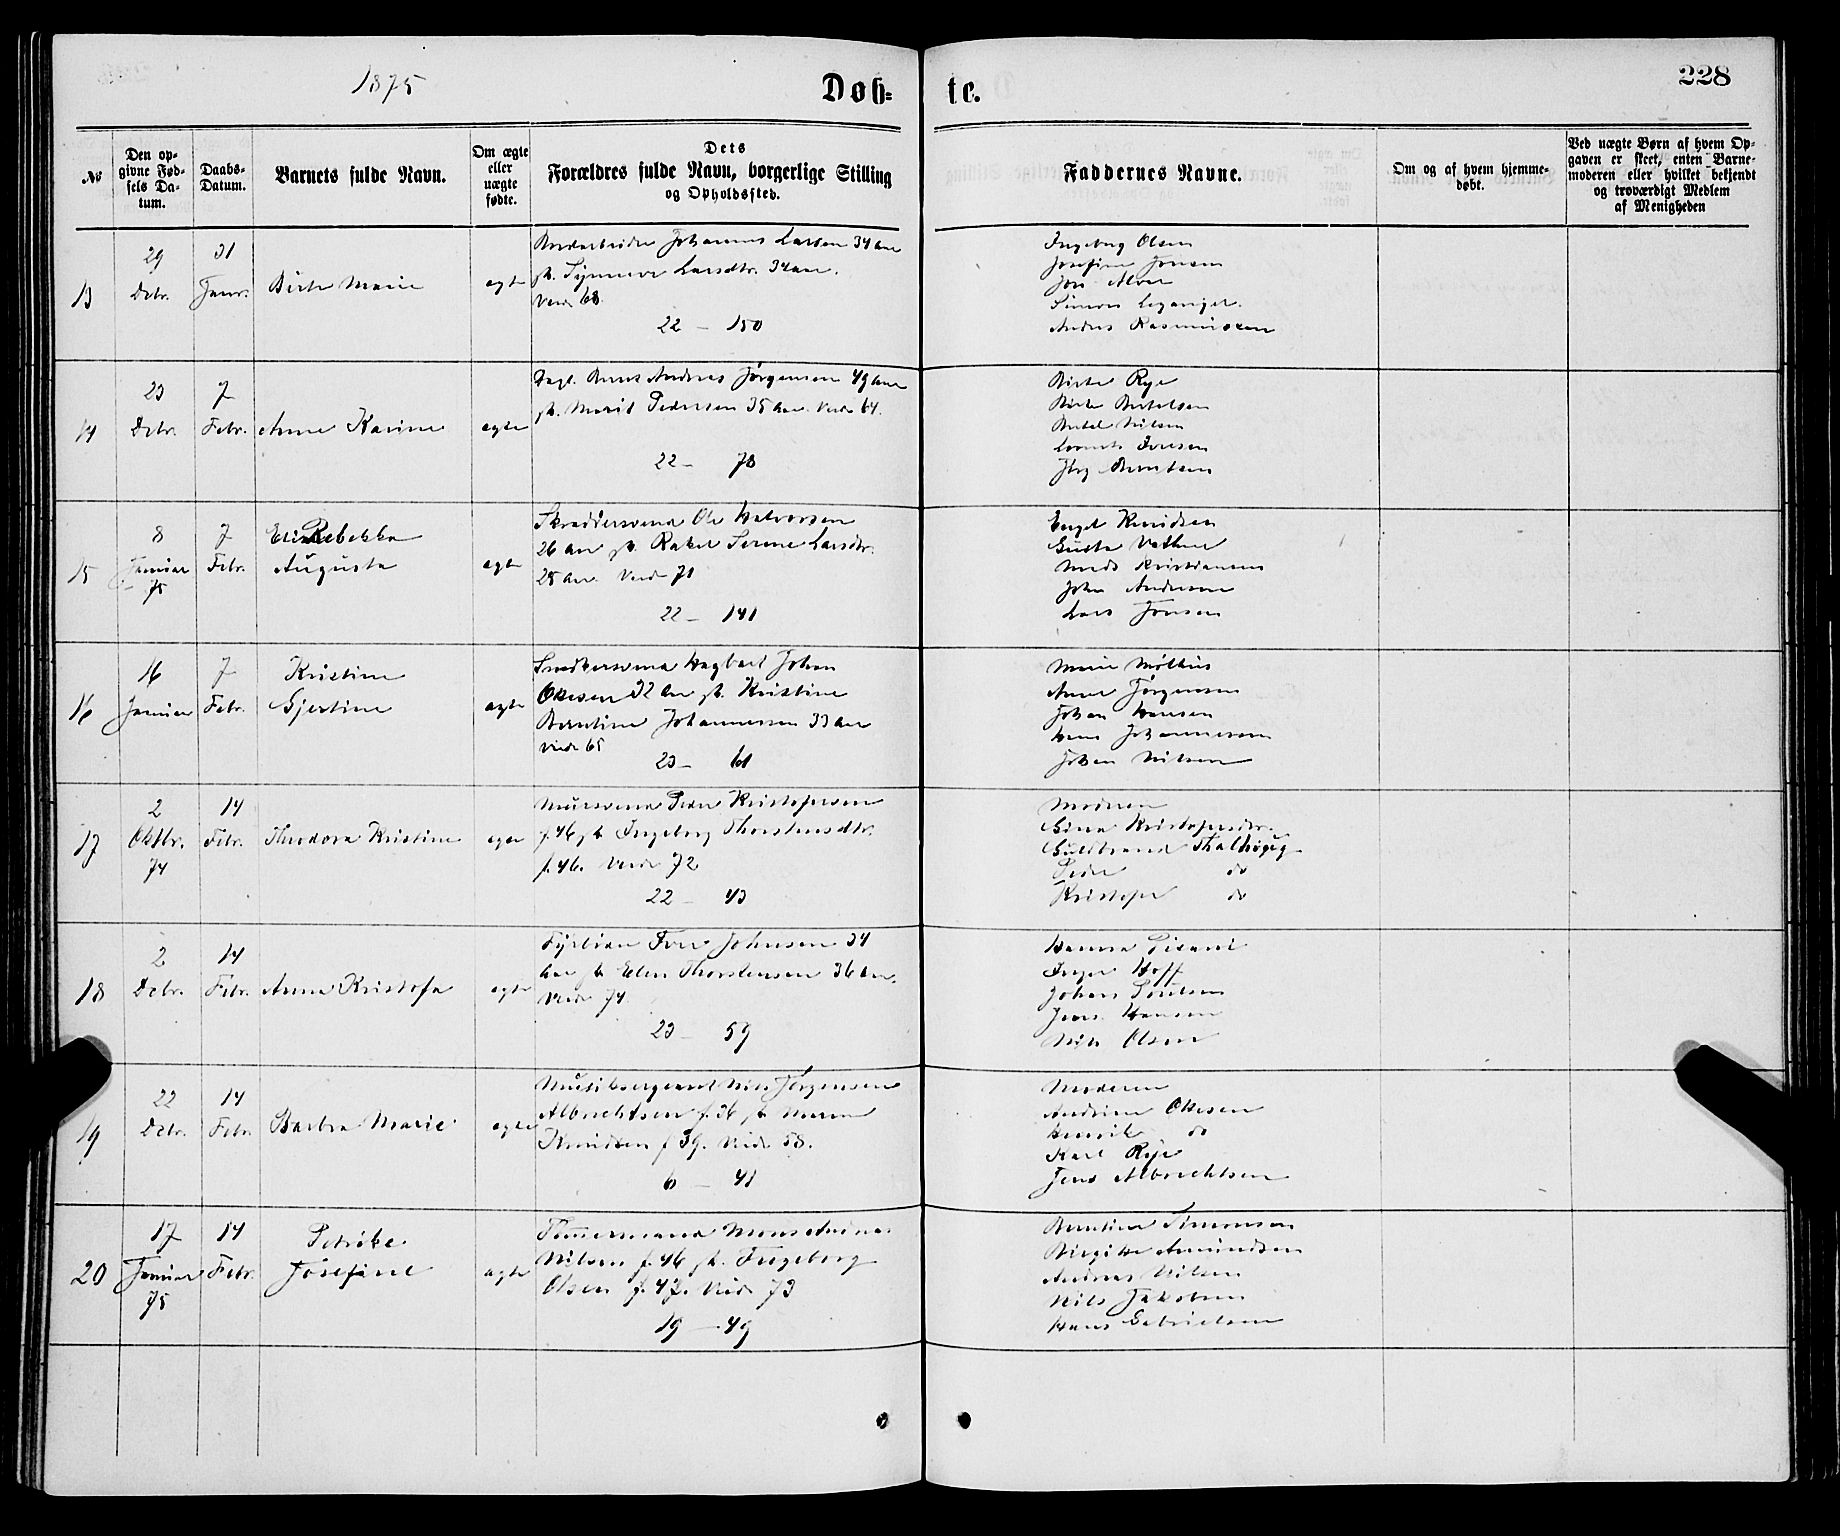 1875
Døb=
te.
228
No
Den op-
givne Fød-
sels Da-
tum.
Daabs-
Datum.
Barnets fulde Navn.
Om ægte
eller
uægte
fødte.
Dets
Forældres fulde Navn, borgerlige Stilling
og Opholdssted.
Faddernes Navne.
Om og af hvem hjemme-
døbt.
Ved uægte Børn af hvem Op-
gaven er skeet, enten Barne-
moderen eller hvilket bekjendt
og troværdigt Medlem
af Menigheden
13
29
Debr.
31
Janr.
Birte Marie
ægte
Johannes Larsen 34 aar
Synneve Larsdtr. 34 aar.
Viede 68
22 - 150
Ingeborg Olsen
Josefine Jonsen
Simon Leganger.
Andrs Rasmussen
14
23
Debr.
7
Febr.
Anne Karine
ægte
Andreas Jørgensen 49 aar
Marit Pedersen 35 aar. Viede 64.
22 - 78
Birte Rye
Birte Bertelsen
Bertel Nilsen
15
8
Januar
75
7
Febr.
Rebekka
Augusta
ægte
Skræddersvend Ole Halvorsen
26 aar Rakel Serine Larsdtr.
28 aar. Viede 71
22 - 141
Engel Knudsen
Mads Kristiansen
John Andersen
Lars Jonsen
16
16
Januar
7
Febr.
Kristine
Gjertine
ægte
Snedkersvend Hagbart Johan
Ottesen 32 aar Kristine
Berntine Johannessen 33 aar
Viede 65
23 - 61
Marie Møthus
Anne Jørgensen
Johan Hansen
Hans Johannessen
Johan Nilsen
17
2
Oktbr.
74
14
Febr.
Theodora Kristine
ægte
Mursvend Peder Kristofersen
f. 46 Ingeborg Thorstensdtr.
f. 46. Viede 72
22 - 43
Moderen
Kristofersdtr.
Guldbrand Thalhøgeg
Peder do
Kristofer do
18
2
Debr.
14
Febr.
Anna Kristofa
ægte
Fyrbøder Iver Johnsen 34
aar Elen Thorstensen 36 aar.
Viede 74
23 - 59
Hanna Pisani
Inger Hoff
Johan Poulsen
Jens Hansen
Nils Olsen
19
22
Debr.
14
Febr.
Barbra Marie
ægte
Musiksergeant Nils Jørgensen
Albrechtsen f. 36 Maren
Knudsen f. 39. Viede 58.
6 - 41
Moderen
Andrine Ottesen
Henrik do
Karl Rye
Jens Albrechtsen
20
17
Januar
75
14
Febr.
Petrike
Josefine
ægte
Tømmermand Mons Andreas
Nilsen f. 46 Ingeborg
Olsen f. 47. Viede 73
19 - 49
Berntine Simonsen
Birgitte Amundsen
Andreas Nilsen
Nils Jakobsen
Hans Gabrielsen